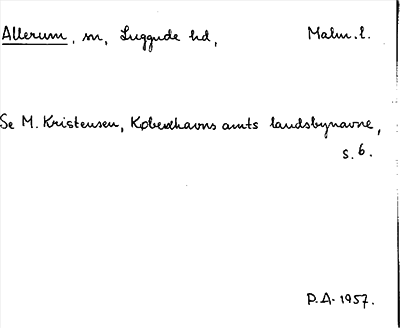 Allerum, sn, Luggude hd, Malm. l.
Se M. Kristensen, Københavns amts landsbynavne,
s. 6.
P.A. 1957.